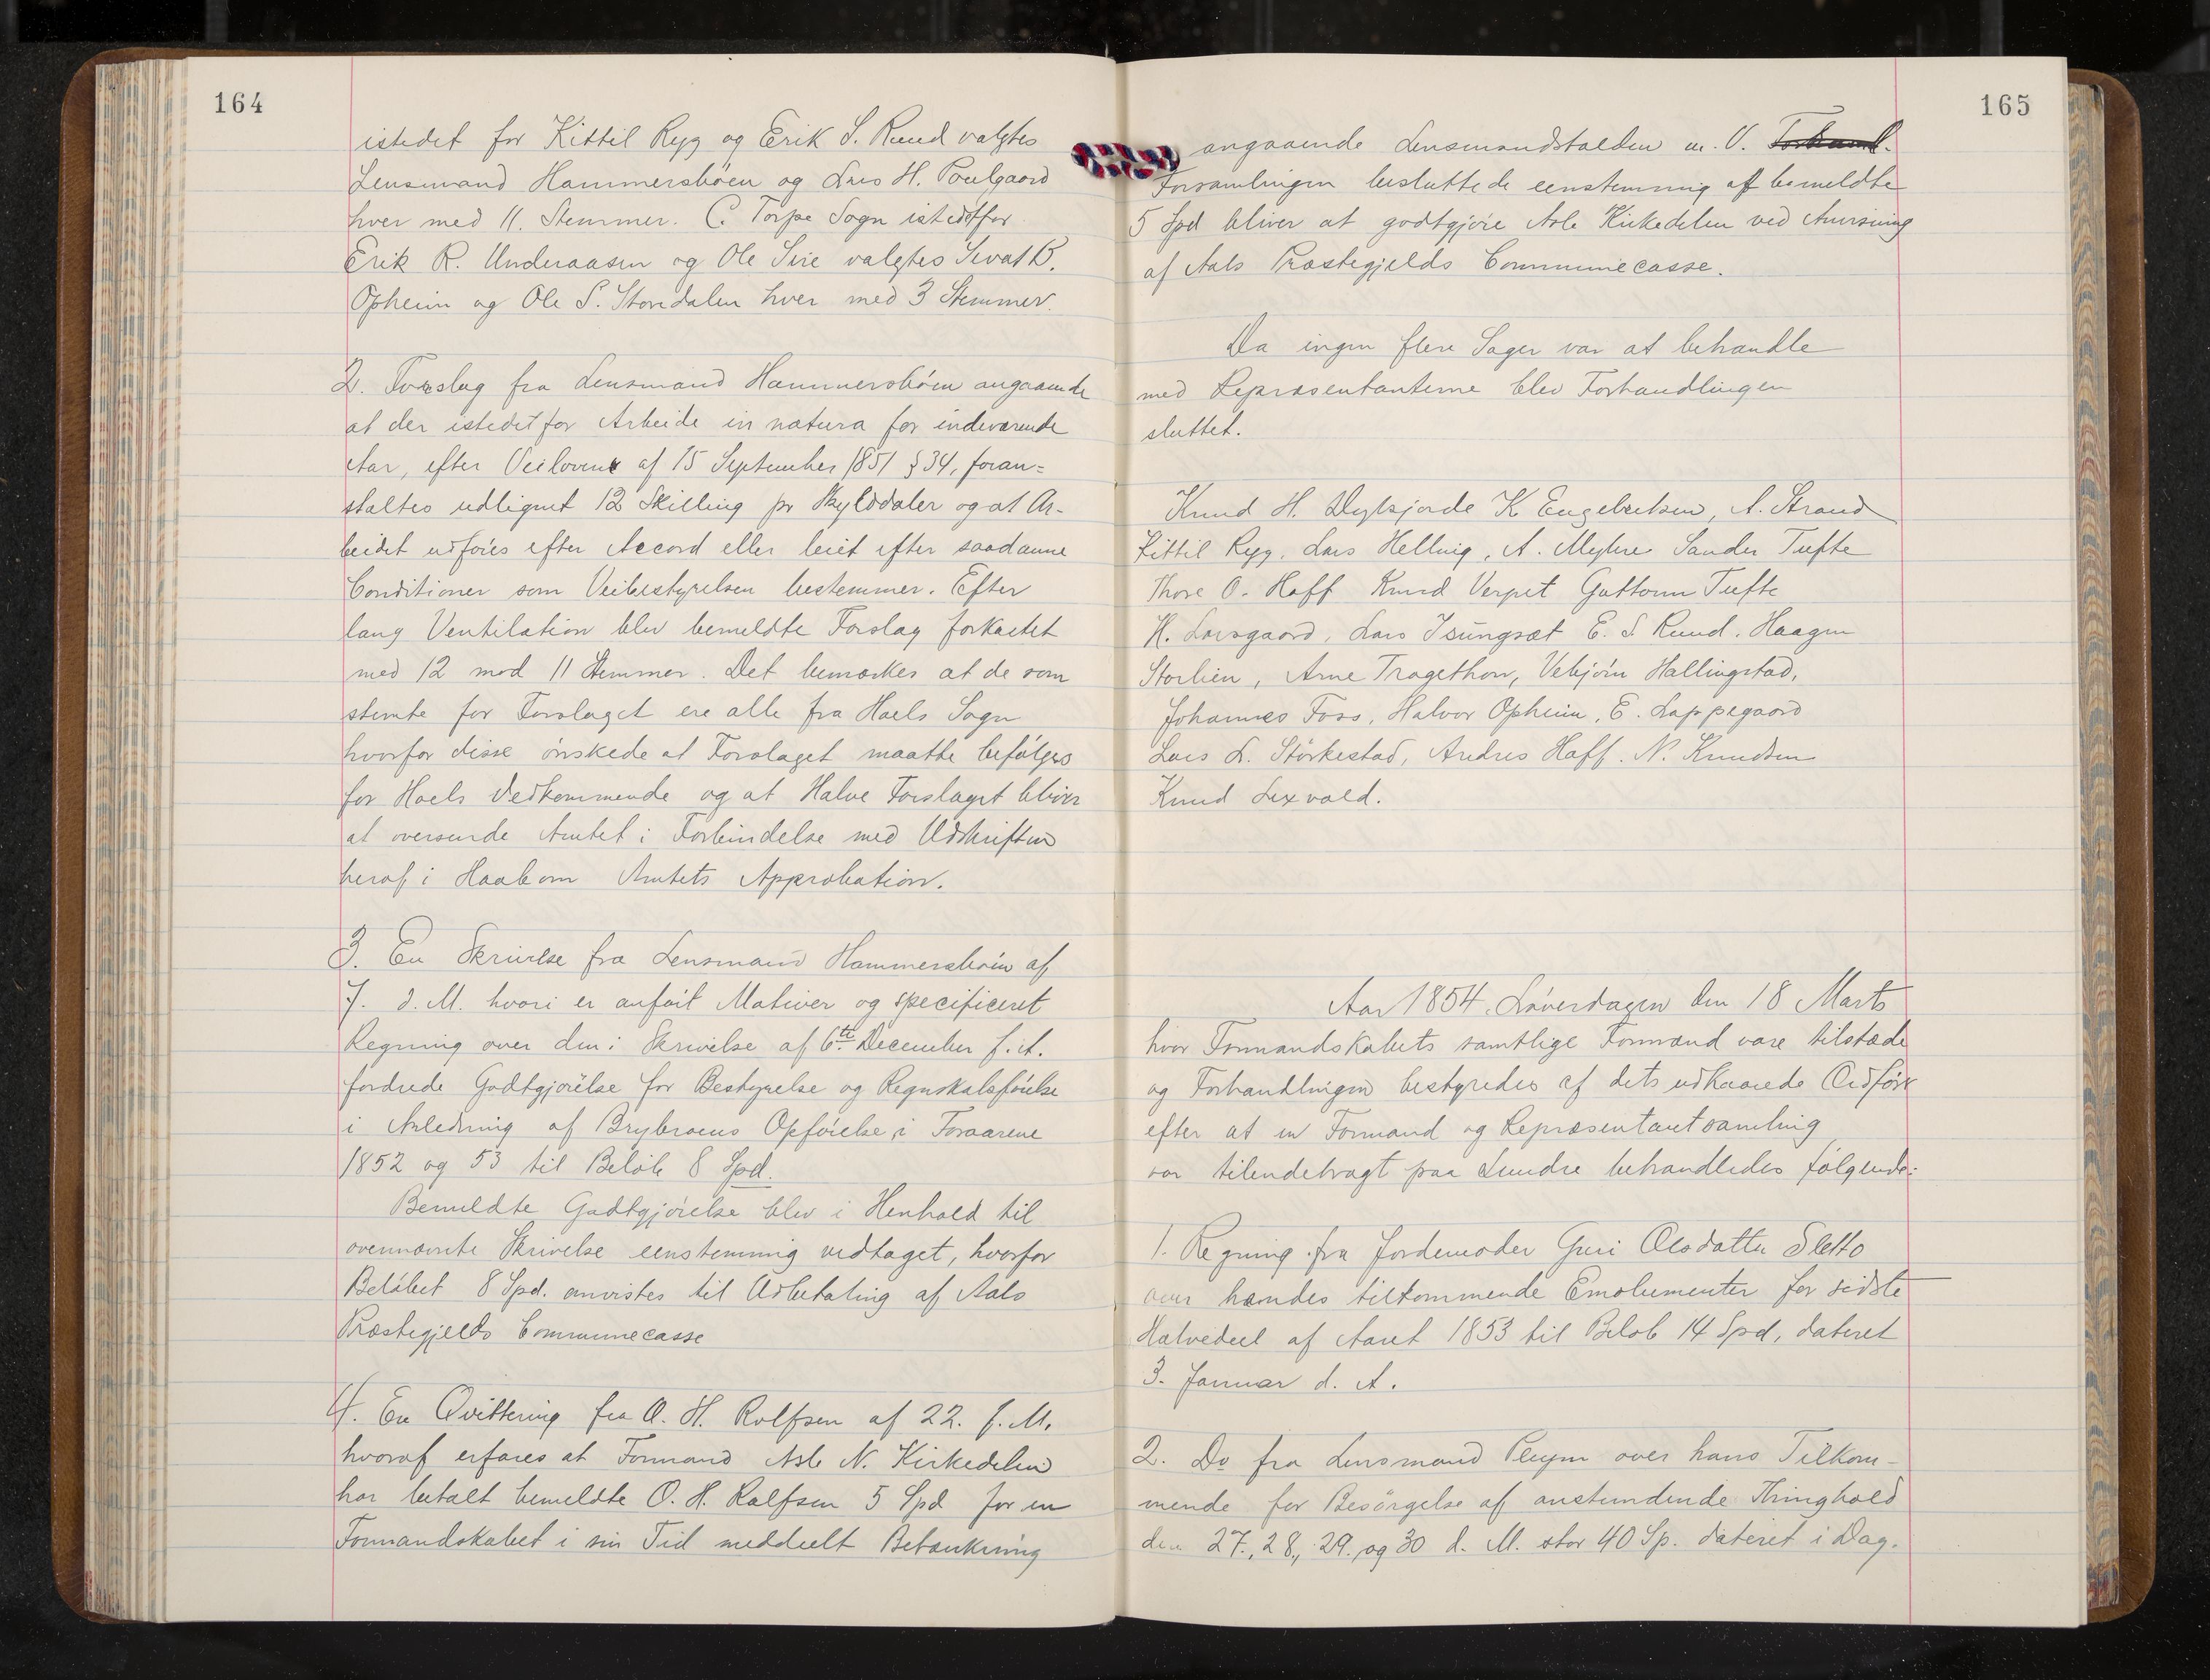 164
istedet for Kittil Ryg og Erik S. Ruud valgtes
Lensmand Hammersbøen og Lars H. Poulgaard
hver med 11. Stemmer. C. Torpe Sogn istedetfor
Erik R. Underaasen og Ole Sire valgtes Sevat B.
Opheim og Ole S. Storedalen hver med 3 Stemmer.
2. Forslag fra Lensmand Hammersbøen angaaende
at der istedetfor Arbeide in natura for indeværende
Aar, efter Veiloven af 15 September 1851 § 34, foran=
staltes udlignet 12 Skilling pr Skylddaler og at Ar-
beidet udføres efter Accord eller leiet efter saadanne
Conditioner som Veibestyrelsen bestemmer. Efter
lang Ventilation blev bemeldte Forslag forkastet
med 12 mod 11 Stemmer. Det bemærkes at de som
stemte for Forslaget ere alle fra Hoels Sogn
hvorfor disse ønskede at Forslaget maatte befølges
for Hoels Vedkommende og at Halve Forslaget bliver
at oversende Amtet i Forbindelse med Udskriften
heraf i Haab om Amtets Approbation.
3. En Skrivelse fra Lensmand Hammersbøen af
7. d. M. hvori er anført Motiver og specificeret
Regning over den i Skrivelse af 6te December f. A.
fordrede Godtgjørelse for Bestyrelse og Regnskabsførelse
i Anledning af Brybroens Opførelse i Foraarene
1852 og 53 til Beløb 8 Spd.
Bemeldte Godtgjørelse blev i Henhold til
ovennævnte Skrivelse eenstemmig vedtaget, hvorfor
Beløbet 8 Spd. anvistes til Udbetaling af Aals
Præstegjelds Communecasse
4. En Qvittering fra O. H. Rolfsen af 22. f. M.
hvoraf erfares at Formand Asle N. Kirkedelen
har betalt bemeldte O. H. Rolfsen 5 Spd for en
Formandskabet i sin Tid meddeelt Betænkning
165
angaaende Lensmandstolden m. V.
Forsamlingen besluttede eenstemmig at bemeldte
5 Spd bliver at godtgjøre Asle Kirkedelen ved Anvisning
af Aals Præstegjelds Communecasse.
Da ingen flere Sager var at behandle
med Repræsentanterne blev Forhandlingen
sluttet.
Knud H. Dyksjorde K Engebretsen, A. Strand
Kittil Ryg, Lars Helling, A. Myhre Sander Tufte
Thore O. Hoff Knud Verpet Guttorm Tufte
H. Larsgaard, Lars Isungsæt E. S. Ruud. Haagen
Storlien, Arne Tragethon, Vebjørn Hallingstad,
Johannes Foss, Halvor Opheim, E. Lappegaard
Lars L. Størkestad, Andres Hoff. N. Knudsen
Knud Lexvold.
Aar 1854. Løverdagen den 18 Marts
hvor Formandskabets samtlige Formænd vare tilstæde
og Forhandlingen bestyredes af dets udkaarede Ordfører
efter at en Formand og Repræsentantsamling
var tilendebragt paa Sundre behandledes følgende:
1. Regning fra Jordemoder Guri Olsdatter Sletto
over hendes tilkommende Emolumenter for sidste
Halvedeel af Aaret 1853 til Beløb 14 Spd, dateret
3. Januar d. A.
2. Do fra Lensmand Pleym over hans Tilkom-
mende for Besørgelse af anstundende Thinghold
den 27., 28., 29. og 30 d. M. stor 40 Sp. dateret i Dag.